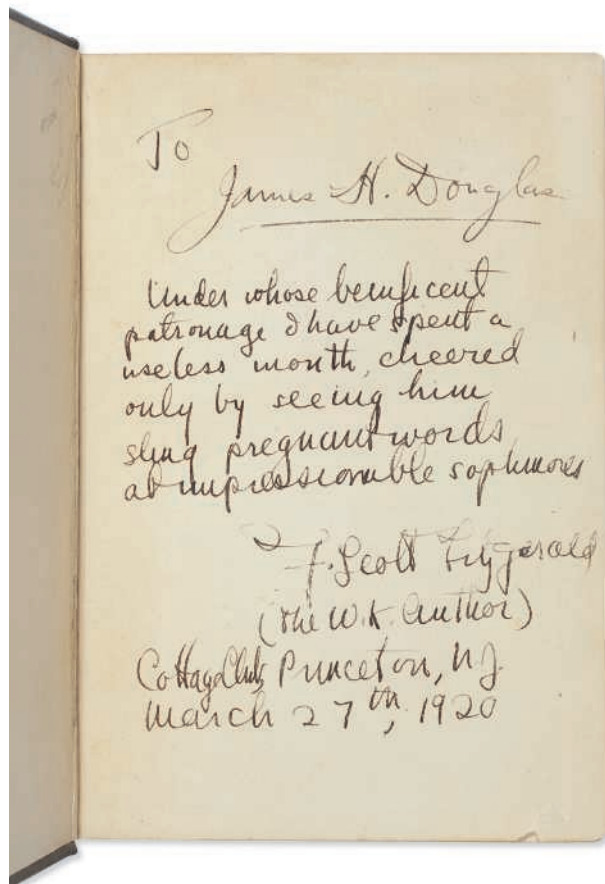 To
James H. Douglas
Under whose beneficent
patronage I have spent a
useless month, cheered
only by seeing him
sling pregnant words
at impressionable sophmores
F. Scott Fitzgerald
(the W.K. Author)
Cottage Club, Princeton, N.J.
March 27th, 1920